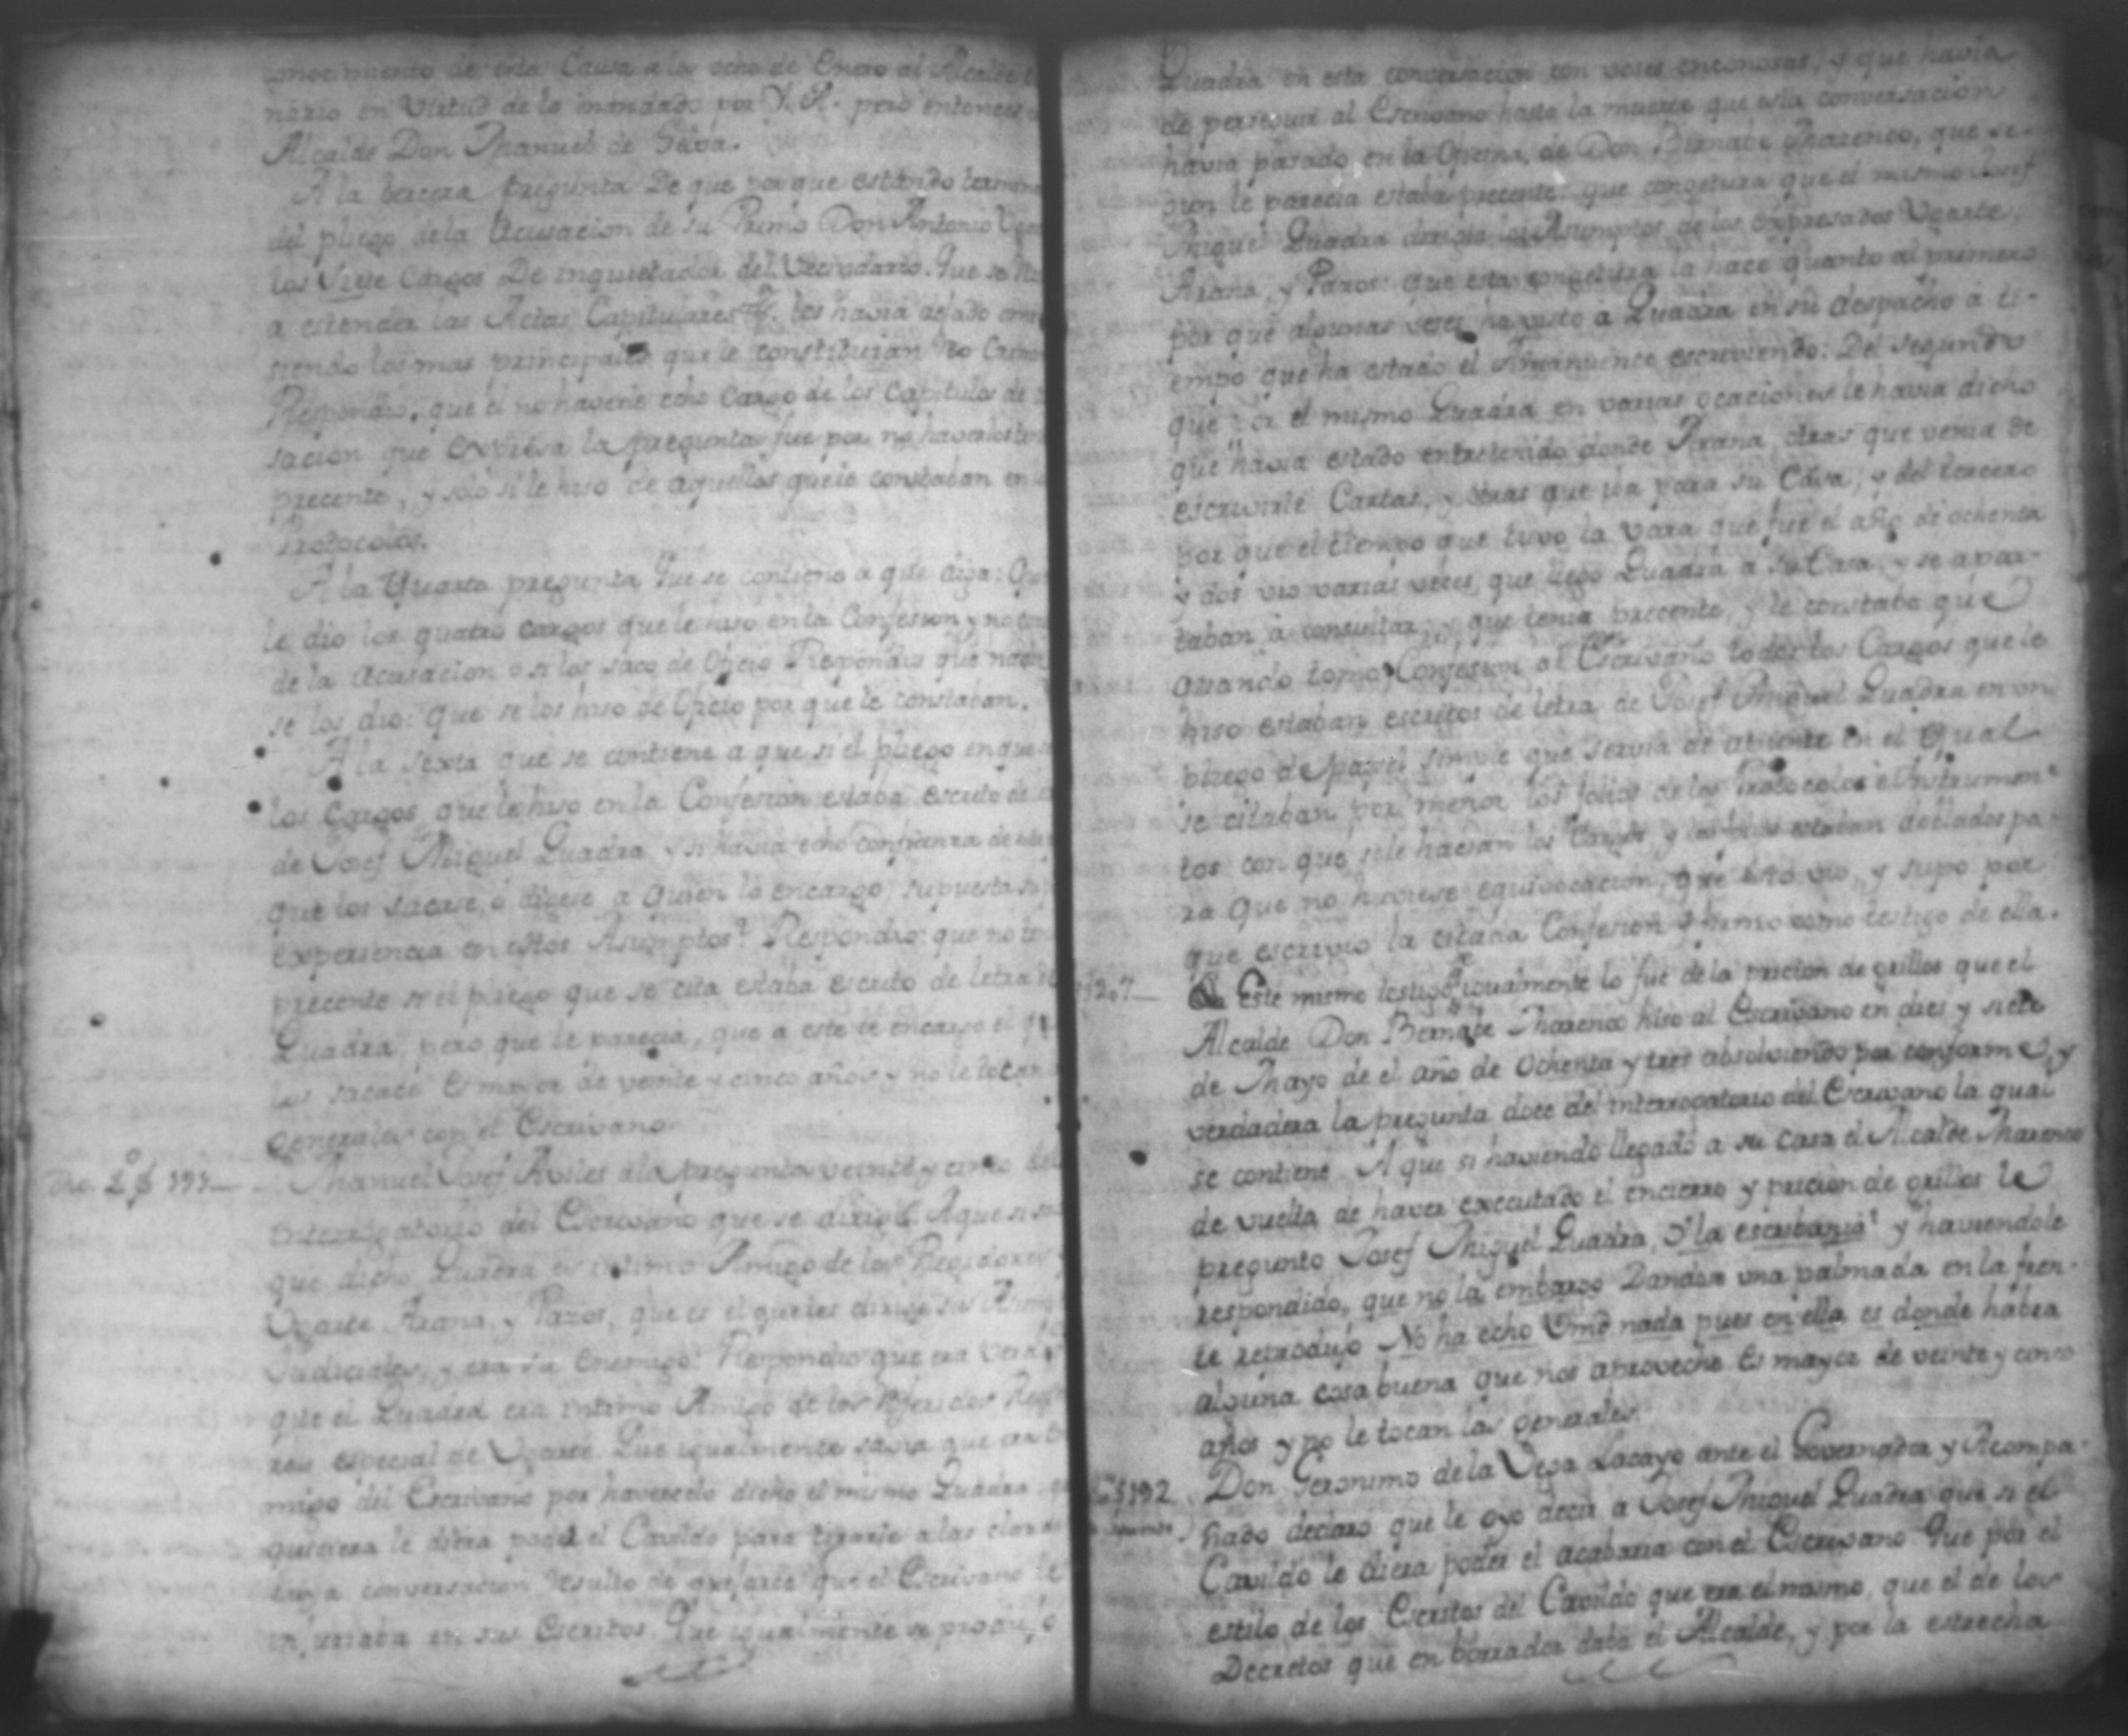 conocimiento de esta Causa a los ocho de Enero al Alcalde
nario en Virtud de lo mandado por V. A. pero entonces
Alcalde Don Manuel de Silva.
A la tercera pregunta De que por que estando
del pliego de la Acusacion de su Primo Don Antonio
los Siete Cargos De inquietador del Vecindario. Que se
a estender las Actas Capitulares &. los havia dejado
siendo los mas principales que le constituian Reo
Respondio, que el no haverle echo Cargo de los Capitulos de
sacion que expresa la pregunta fue por no haverlos
precente, y solo si le hiso de aquellos que le constaban en
Protocolos.
A la Quarta pregunta Que se contiene a que diga:
le dio los quatro cargos que le hiso en la Confesion y no
de la Acusacion o si los saco de Oficio Respondio que
se los dio: que se los hiso de Oficio por que le constaban.
A la Sexta que se contiene a que si el pliego en que
los Cargos que le hiso en la Confesion estaba escrito de
de Josef Miguel Quadra y si havia echo confianza de
que los sacase, o dijese a quien lo encargo, supuesta su
experiencia en estos Asumptos? Respondio: que no
precente si el pliego que se cita estaba escrito de letra
Quadra, pero que le parecia, que a este le encargo el
los sacase Es mayor de veinte y cinco años y no le tocan
generales con el Escrivano
Manuel Josef Aviles a la pregunta veinte y cinco del
Interrogatorio del Escrivano que se dirige. A que si
que dicho Quadra es intimo Amigo de los Regidores
Ugarte Arana, y Pazos, que es el que les dirige sus
Judiciales, y era su Enemigo: Respondio que era
que el Quadra era intimo Amigo de los referidos
en especial de Ugarte Que igualmente savia que era
migo del Escrivano por haverselo dicho el mismo Quadra
quisiera le diera poder el Cavildo para tirarle a las
cuya conversacion resulto de quejarse que el Escrivano le
en sus Escritos. Que igualmente se produjo
Quadra en esta conversacion con voses enconosas, y que havia
de perseguir al Escrivano hasta la muerte que esta conversacion
havia pasado en la Oficina de Don Bernabe Marenco, que se-
gun le parecia estaba precente: que congetura que el mismo Josef
Miguel Quadra dirigia los Asumptos de los expresados Ugarte,
Arana, y Pazos: que esta congetura la hace quanto al primero
por que algunas veses ha visto a Quadra en su despacho a ti-
empo que ha estado el Amanuence escriviendo: Del segundo
que el mismo Quadra en varias ocaciones le havia dicho
que havia estado entretenido donde Arana, otras que venia de
escrivirle Cartas, y otras que iba para su Casa; y del tercero
por que el tiempo que tuvo la vara que fue el año de ochenta
y dos vio varias veces, que llego Quadra a su Casa y se apar-
taban a consultar, que tenia precente, y le constaba que
quando tomo Confesion al Escrivano todos los Cargos que le
hiso estaban escritos de letra de Josef Miguel Quadra en un
pliego de papel simple que servia de apunte en el qual
se citaban por menor los folios de los Protocolos e Instrumen-
tos con que se le hacian los Cargos y las ojas estaban dobladas pa-
ra que no huviese equivocacion, que esto vio, y supo por
que escrivio la citada Confesion y firmo como testigo de ella.
207 — Este mismo testigo igualmente lo fue de la pricion de grillos que el
Alcalde Don Bernabe Marenco hiso al Escrivano en dies y siete
de Mayo de el año de Ochenta y tres absolviendo por conforme, y
verdadera la pregunta doce del interrogatorio del Escrivano la qual
se contiene. A que si haviendo llegado a su casa el Alcalde Marenco
de vuelta de haver executado el encierro y pricion de grillos le
pregunto Josef Miguel Quadra, y la escribania? y haviendole
respondido, que no la embargo Dandose una palmada en la fren-
te reprodujo No ha echo Vmd nada pues en ella es donde habra
alguna cosa buena que nos aproveche Es mayor de veinte y cinco
años y no le tocan las generales.
192 Don Geronimo de la Vega Lacayo ante el Governador y Acompa-
ñado declaro que le oyo decir a Josef Miguel Quadra que si el
Cavildo le diera poder el acabaria con el Escrivano Que por el
estilo de los Escritos del Cavildo que era el mismo, que el de los
Decretos que en borrador daba el Alcalde, y por la estrecha